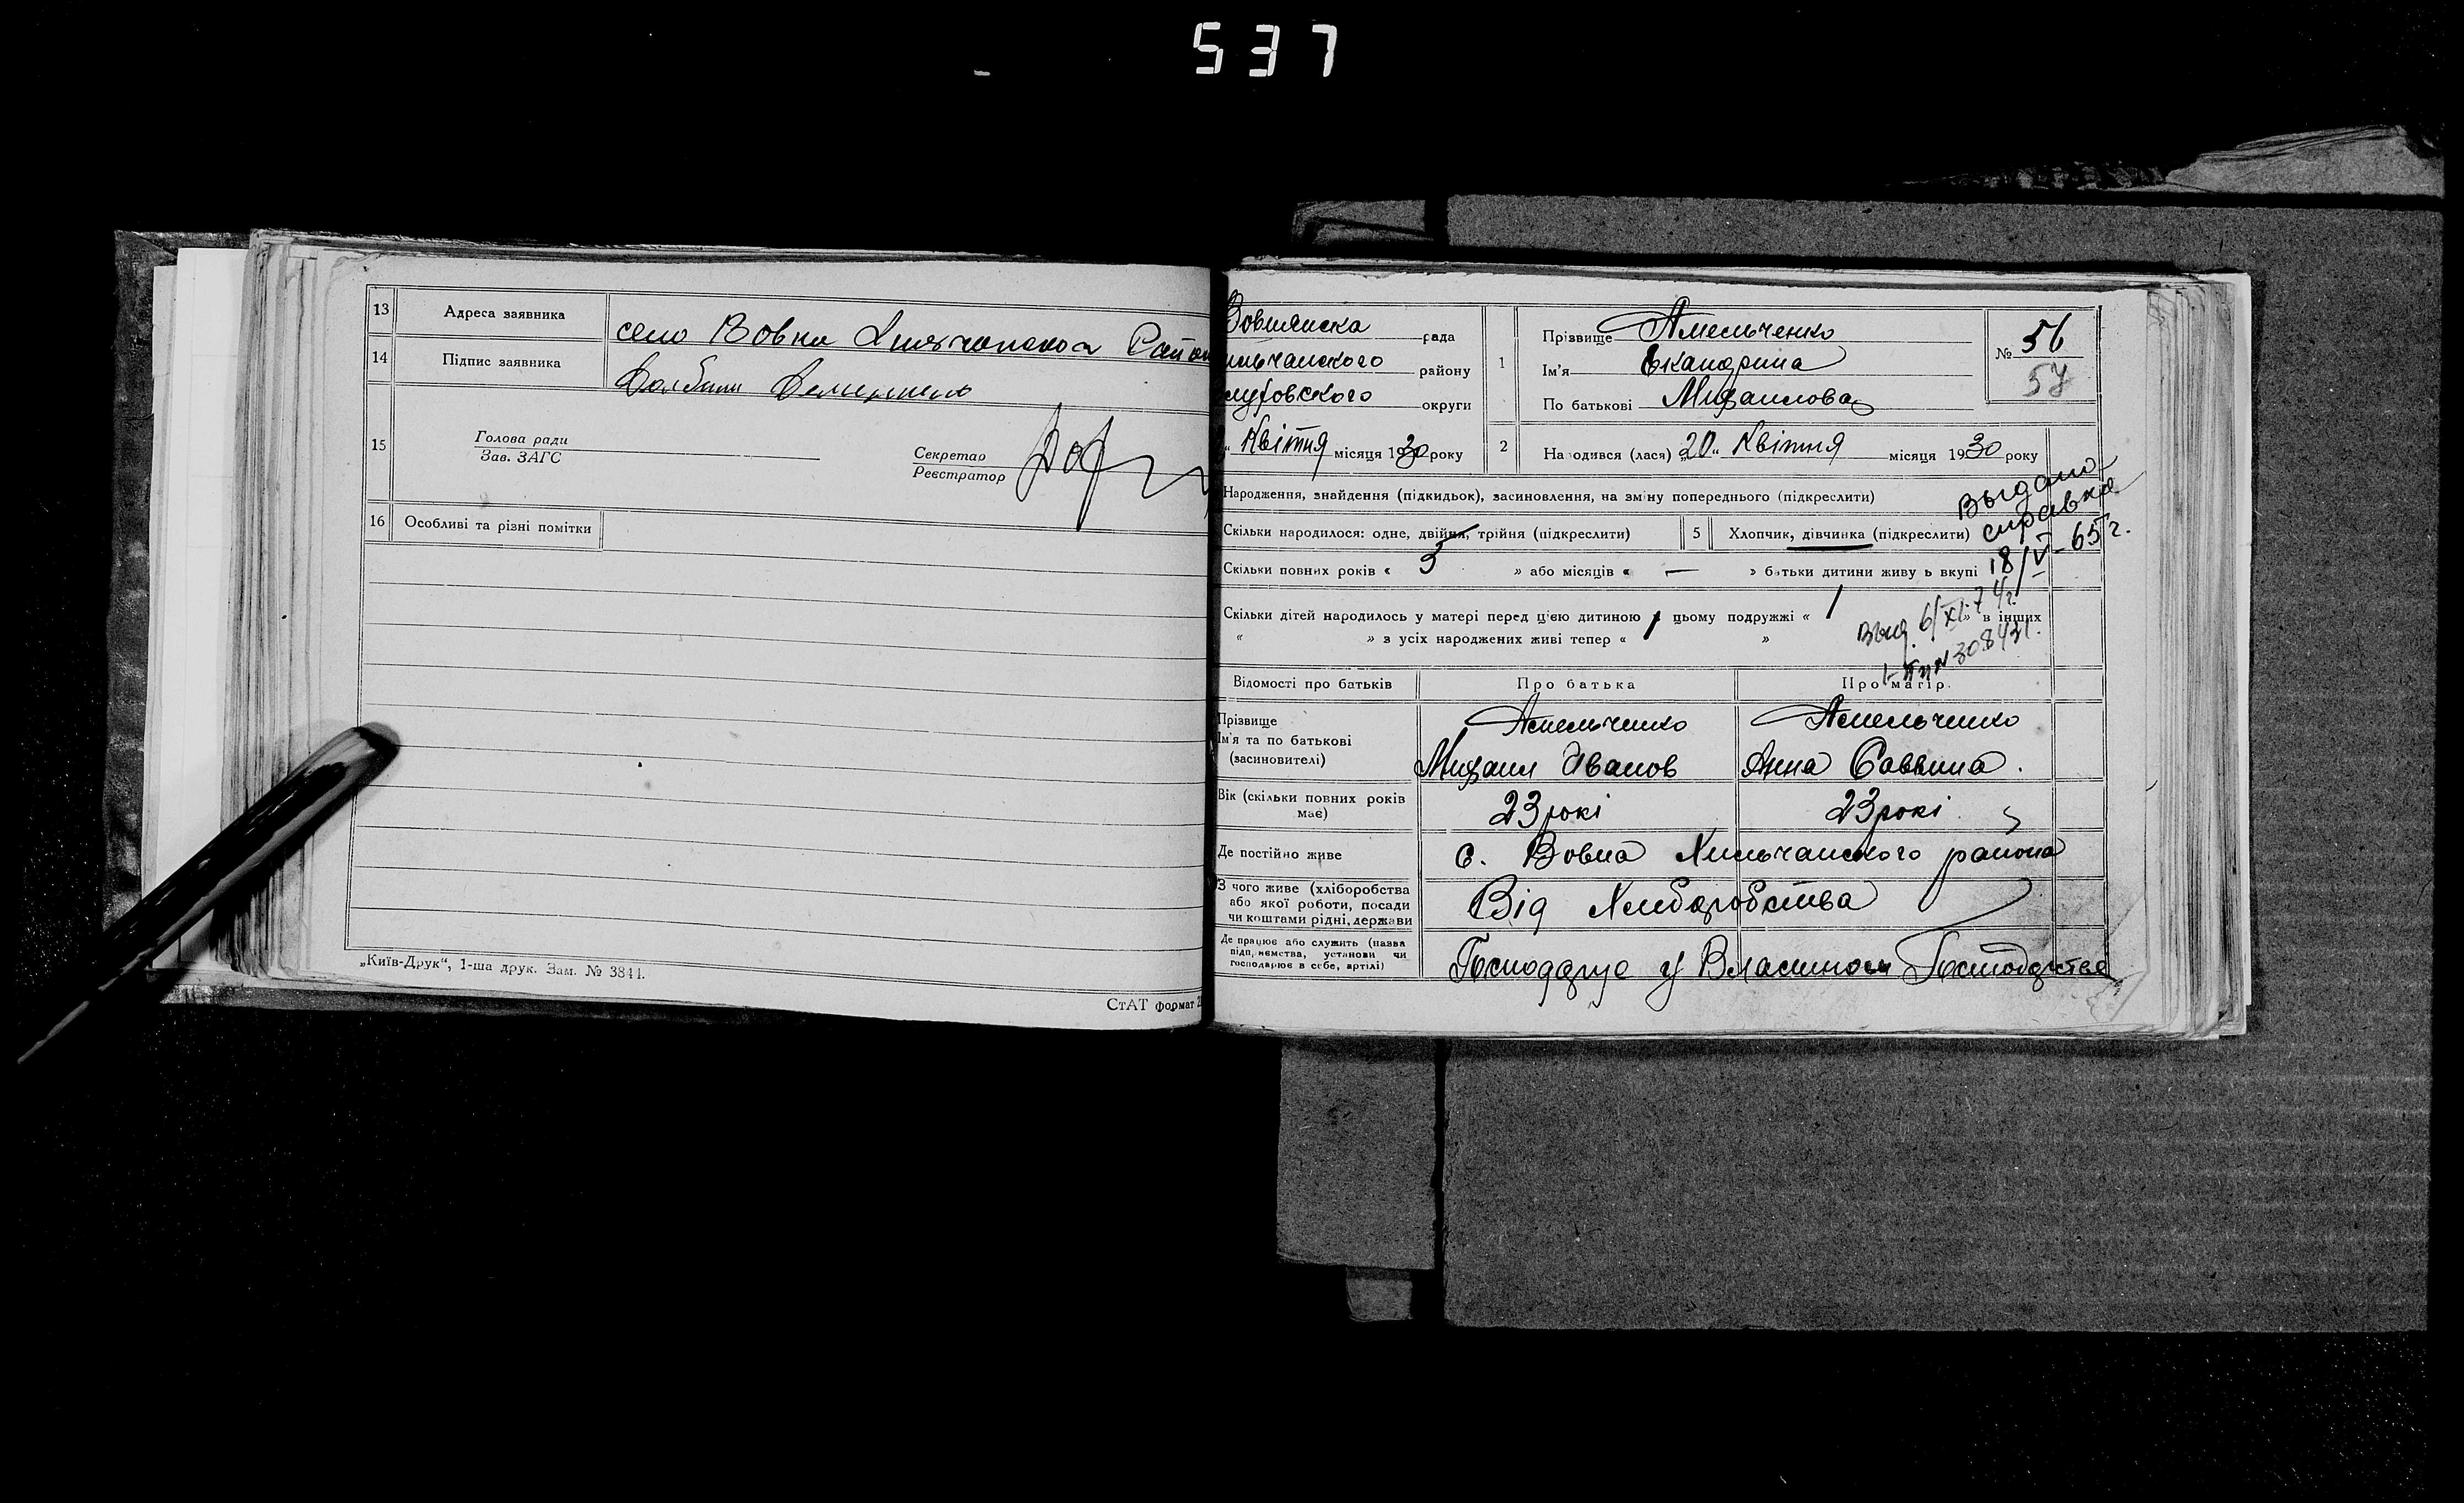 537
13 Адреса заявника село Вовна
14 Підпис заявника
15 Голова ради
Зав. ЗАГС
Секретар
Реєстратор
16 Особливі та різні помітки
„Київ-Друк“, 1-ша друк. Зам. № 3841.
СтАТ формат
Вовнянска рада
ильчанского району
луховского округи
Квітня місяця 1930 року
1 Прізвище Амельченко
Ім'я Екатерина
По батькові Михаилова
№ 56
57
2 Народився (лася) „20“ Квітня місяця 1930 року
Народження, знайдення (підкидьок), засиновлення, на зміну попереднього (підкреслити)
Выдано
справка
18/V-65 г.
Скільки народилося: одне, двійня, трійня (підкреслити) 5 Хлопчик, дівчинка (підкреслити)
Скільки повних років « 5 » або місяців « — » батьки дитини живуть вкупі
Скільки дітей народилось у матері перед цією дитиною в цьому подружжі « 1 » в інших
« » з усіх народжених живі тепер « 1 »
Выд. 6/XI-74г.
№308431.
Відомості про батьків Про батька Про матір.
Прізвище Амельченко Амельченко
Ім'я та по батькові Михаил Иванов Анна Саввина.
(засиновителі)
Вік (скільки повних років має) 23 рокі 23 рокі
Де постійно живе с. Вовна Хильчанского района
З чого живе (хліборобства
або якої роботи, посади
чи коштами рідні, держави Від Хлиборобства
Де працює або служить (назва
підприємства, установи чи
господарює в себе, артілі) Господарує у Власном Господарстве